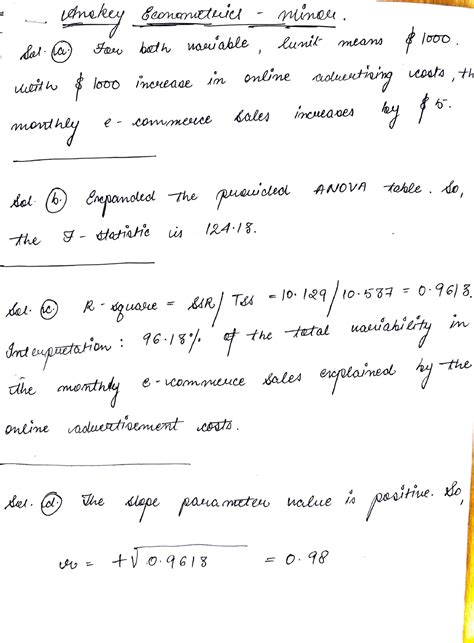 Anskey Econometrics - Minor.
Sol. (a) For both variable, 1unit means $ 1000.
with $ 1000 increase in online advertising costs, th
monthly e-commerce sales increases by $ 5.
Sol. (b.) Expanded the provided ANOVA table. So,
the F-statistic is 124.18.
Sol. (c) R-square = SSR/TSS = 10.129/10.537 = 0.9613.
Interpretation: 96.13% of the total variability in
the monthly e-commerce sales explained by the
online advertisement costs.
Sol. (d.) The slope parameter value is positive. So,
r = +√0.9613 = 0.98